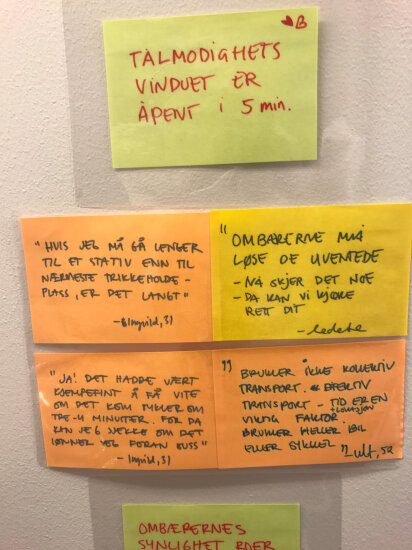 ♥B
TÅLMODIGHETS
VINDUET ER
ÅPENT i 5 min.
"HVIS JEG MÅ GÅ LENGER
TIL ET STATIV ENN TIL
NÆRMESTE TRIKKEHOLDE-
PLASS, ER DET LANGT"
- Ingvild, 31
"OMBÆRERNE MÅ
LØSE DE UVENTEDE
- NÅ SKJER DET NOE
- DA KAN VI KJØRE
RETT DIT
"JA! DET HADDE VÆRT
KJEMPEFINT Å FÅ VITE
OM DET KOM SYKLER OM
TRE-4 MINUTTER. FOR DA
KAN JEG SJEKKE OM DET
LØNNER SEG FORAN BUSS"
- Ingvild, 31
"BRUKER IKKE KOLLEKTIV
TRANSPORT. EFFEKTIV
TRANSPORT - TID ER EN
VIKTIG FAKTOR.
BRUKER HELLER BIL
ELLER SYKKEL
OMBÆRERNES
SYNLIGHET